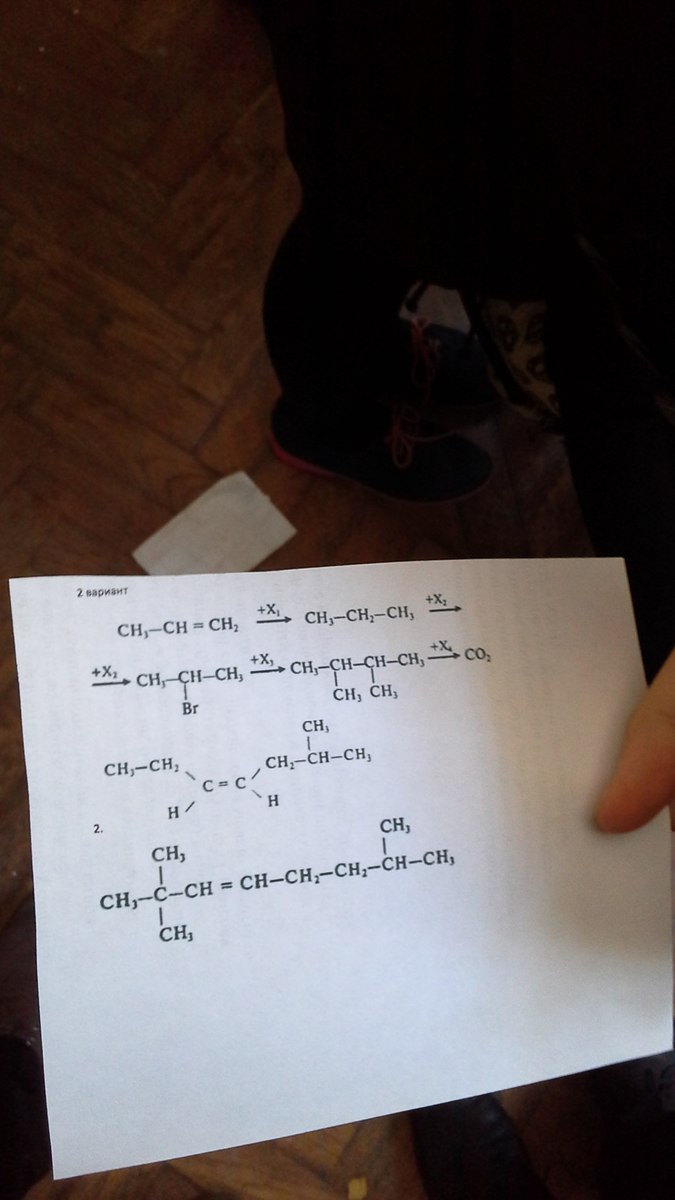 2 вариант
CH₃—CH = CH₂ +X₁→ CH₃—CH₂—CH₃ +X₂→
+X₂→ CH₃—CH—CH₃ +X₃→ CH₃—CH—CH—CH₃ +X₄→ CO₂
Br CH₃ CH₃
CH₃
CH₃—CH₂ CH₂—CH—CH₃
C = C
H H
2.
CH₃ CH₃
CH₃—C—CH = CH—CH₂—CH₂—CH—CH₃
CH₃